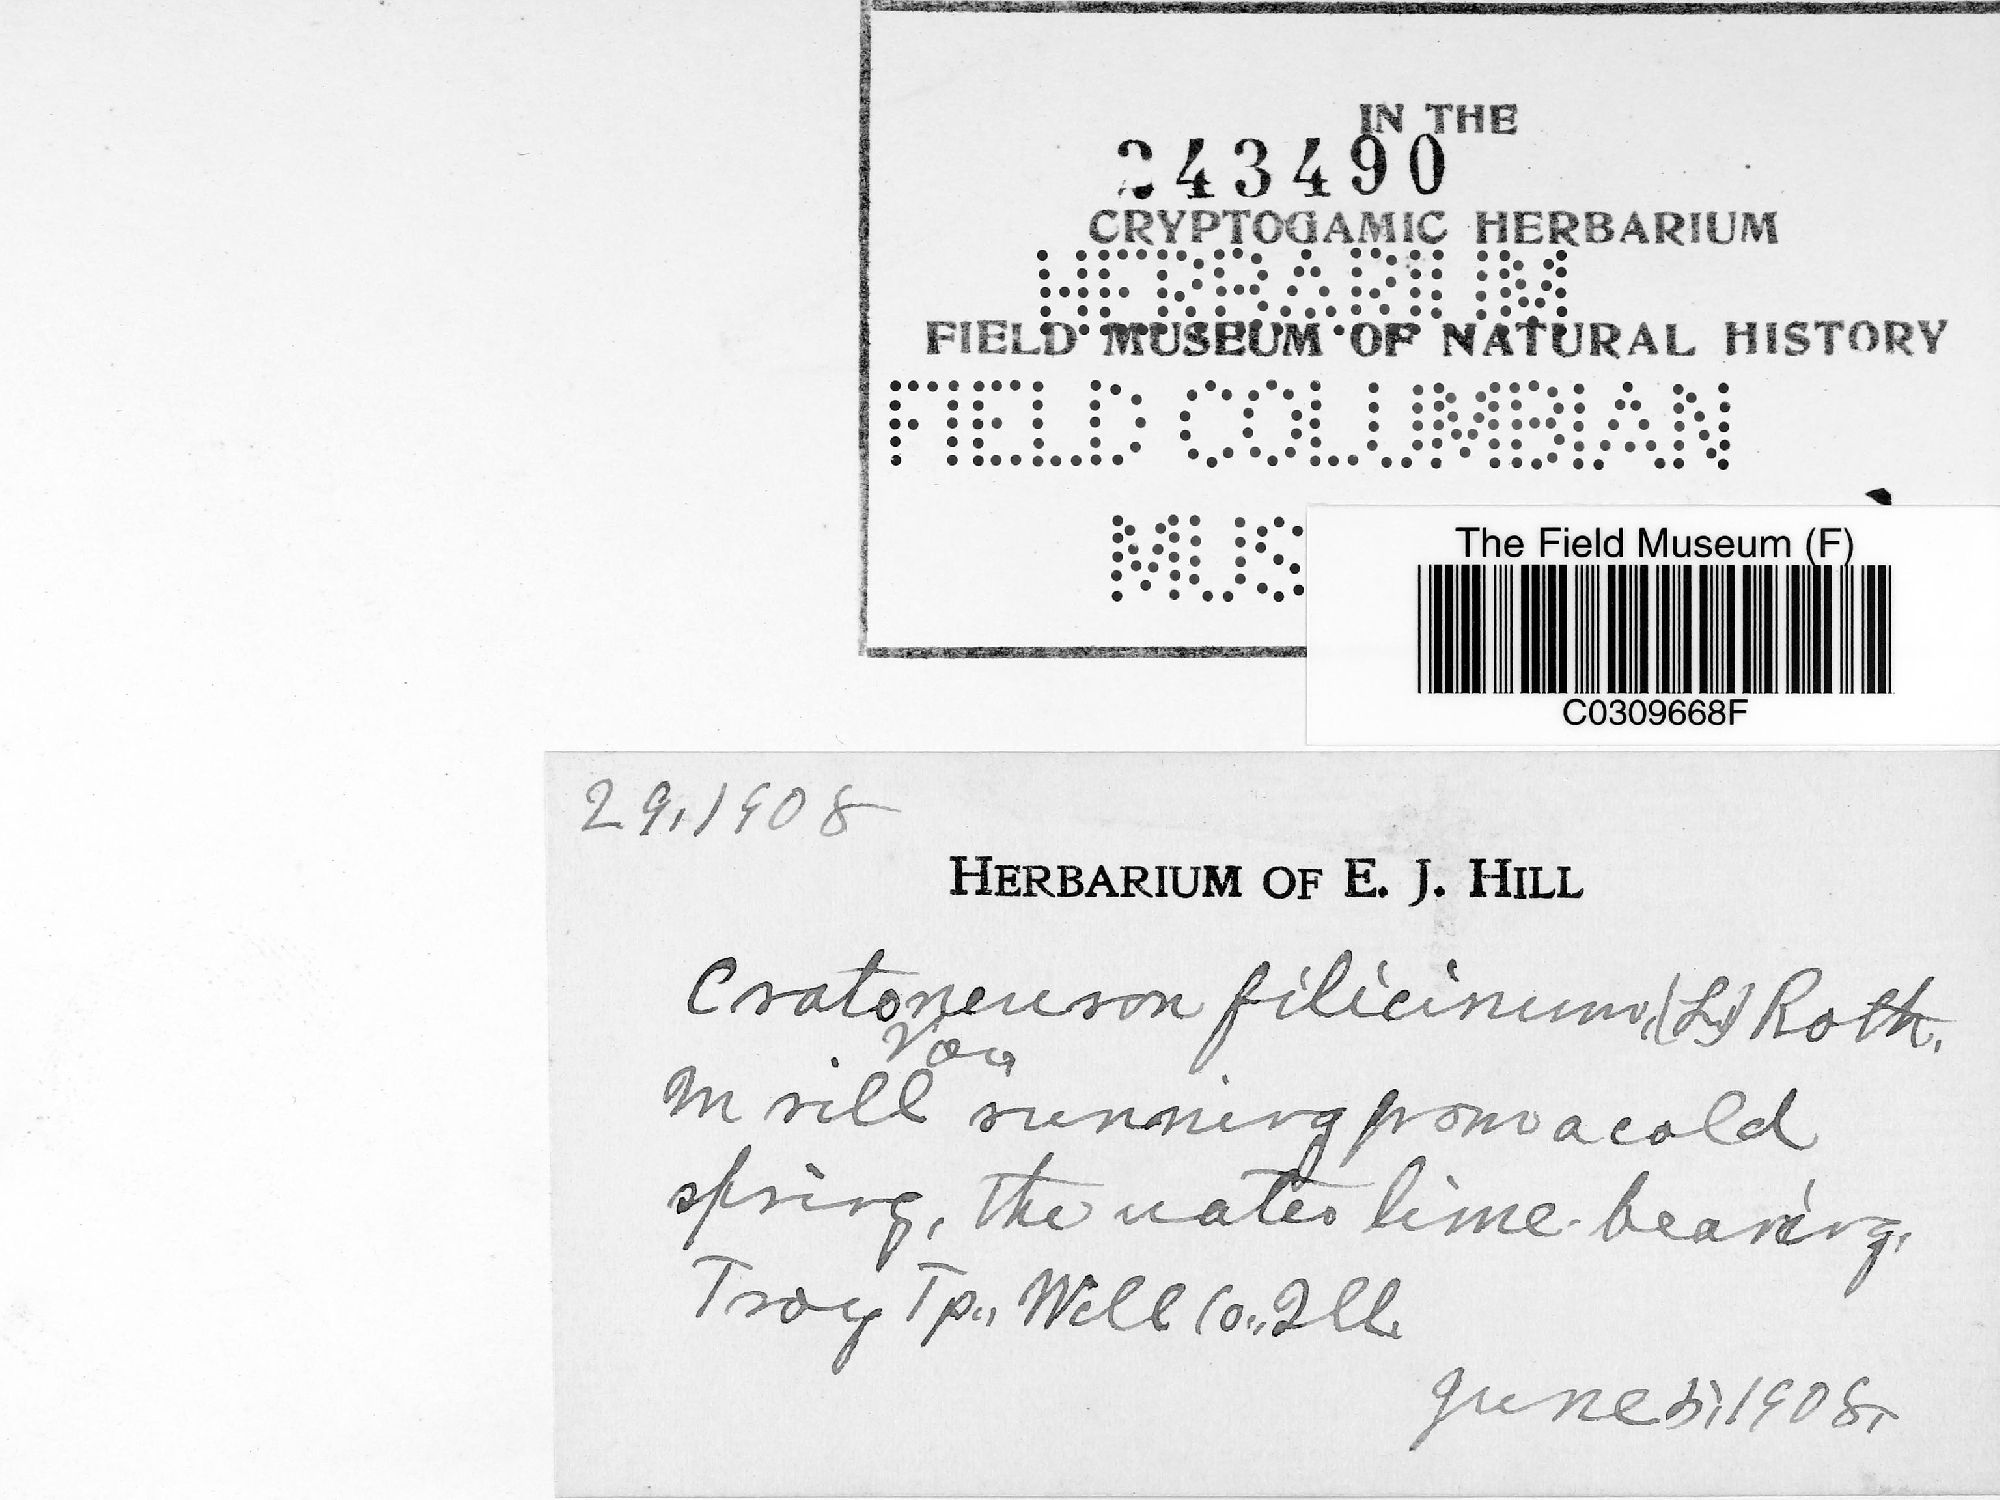 IN THE
243490
CRYPTOGAMIC HERBARIUM
HERBARIUM
FIELD MUSEUM OF NATURAL HISTORY
FIELD COLUMBIAN
MUS
The Field Museum (F)
C0309668F
29,1908
HERBARIUM OF E. J. HILL
Cratoneuron filicinum, (L.) Roth.
Var
In rill running from a cold
spring, the water lime-bearing.
Troy Tp., Will Co., Ill.
June 5, 1908.